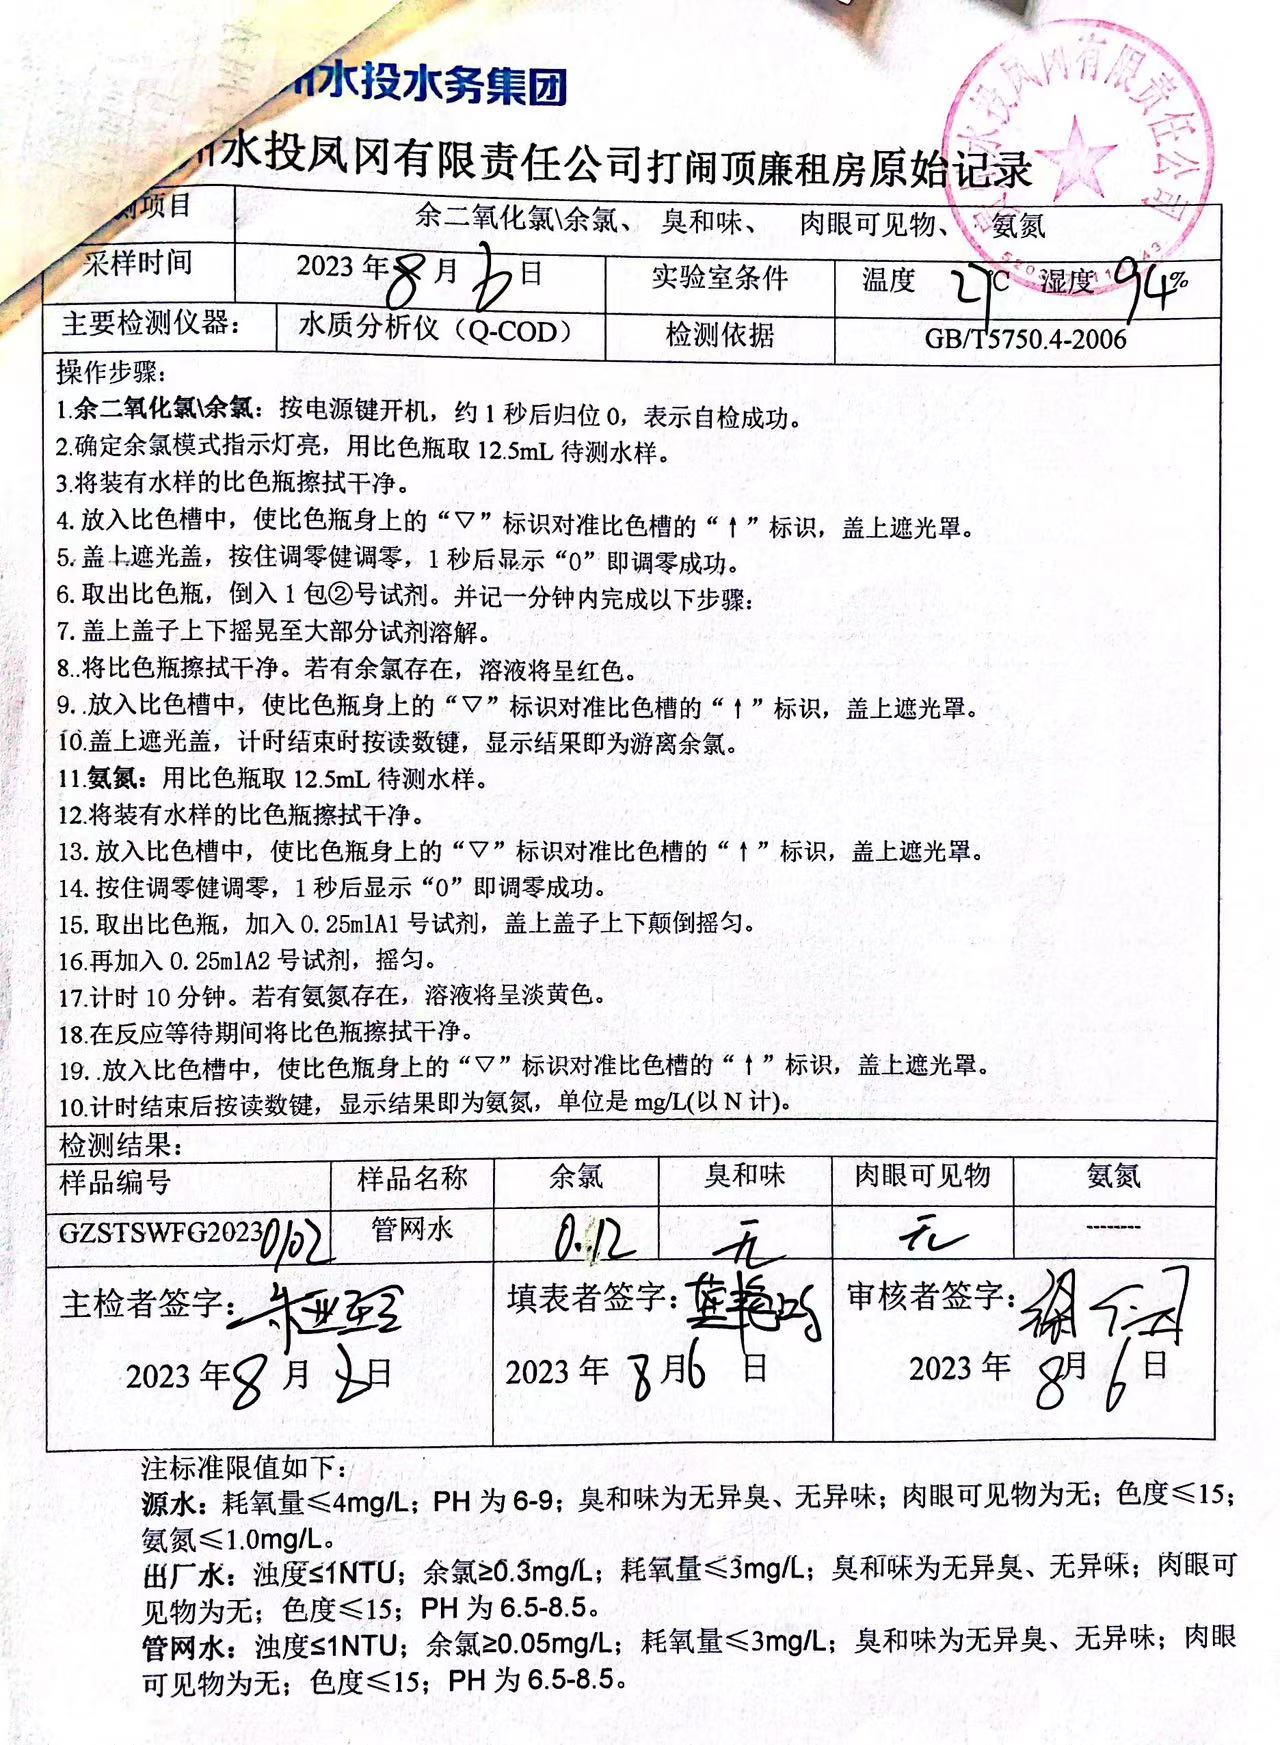 水投水务集团
水投凤冈有限责任公司打闹顶廉租房原始记录
水投凤冈有限责任公司
测项目 余二氧化氯\余氯、 臭和味、 肉眼可见物、 氨氮
采样时间 2023年8月6日 实验室条件 温度 27℃ 湿度 94%
主要检测仪器: 水质分析仪(Q-COD) 检测依据 GB/T5750.4-2006
操作步骤:
1.余二氧化氯\余氯:按电源键开机,约1秒后归位0,表示自检成功。
2.确定余氯模式指示灯亮,用比色瓶取12.5mL待测水样。
3.将装有水样的比色瓶擦拭干净。
4.放入比色槽中,使比色瓶身上的“▽”标识对准比色槽的“↑”标识,盖上遮光罩。
5.盖上遮光盖,按住调零健调零,1秒后显示“0”即调零成功。
6.取出比色瓶,倒入1包②号试剂。并记一分钟内完成以下步骤:
7.盖上盖子上下摇晃至大部分试剂溶解。
8..将比色瓶擦拭干净。若有余氯存在,溶液将呈红色。
9..放入比色槽中,使比色瓶身上的“▽”标识对准比色槽的“↑”标识,盖上遮光罩。
10.盖上遮光盖,计时结束时按读数键,显示结果即为游离余氯。
11.氨氮:用比色瓶取12.5mL待测水样。
12.将装有水样的比色瓶擦拭干净。
13.放入比色槽中,使比色瓶身上的“▽”标识对准比色槽的“↑”标识,盖上遮光罩。
14.按住调零健调零,1秒后显示“0”即调零成功。
15.取出比色瓶,加入0.25mlA1号试剂,盖上盖子上下颠倒摇匀。
16.再加入0.25mlA2号试剂,摇匀。
17.计时10分钟。若有氨氮存在,溶液将呈淡黄色。
18.在反应等待期间将比色瓶擦拭干净。
19..放入比色槽中,使比色瓶身上的“▽”标识对准比色槽的“↑”标识,盖上遮光罩。
10.计时结束后按读数键,显示结果即为氨氮,单位是mg/L(以N计)。
检测结果:
样品编号 样品名称 余氯 臭和味 肉眼可见物 氨氮
GZSTSWFG20230102 管网水 0.12 无 无 --------
主检者签字: 填表者签字: 审核者签字:
2023年8月6日 2023年8月6日 2023年8月6日
注标准限值如下:
源水:耗氧量≤4mg/L;PH为6-9;臭和味为无异臭、无异味;肉眼可见物为无;色度≤15;
氨氮≤1.0mg/L。
出厂水:浊度≤1NTU;余氯≥0.3mg/L;耗氧量≤3mg/L;臭和味为无异臭、无异味;肉眼可
见物为无;色度≤15;PH为6.5-8.5。
管网水:浊度≤1NTU;余氯≥0.05mg/L;耗氧量≤3mg/L;臭和味为无异臭、无异味;肉眼
可见物为无;色度≤15;PH为6.5-8.5。